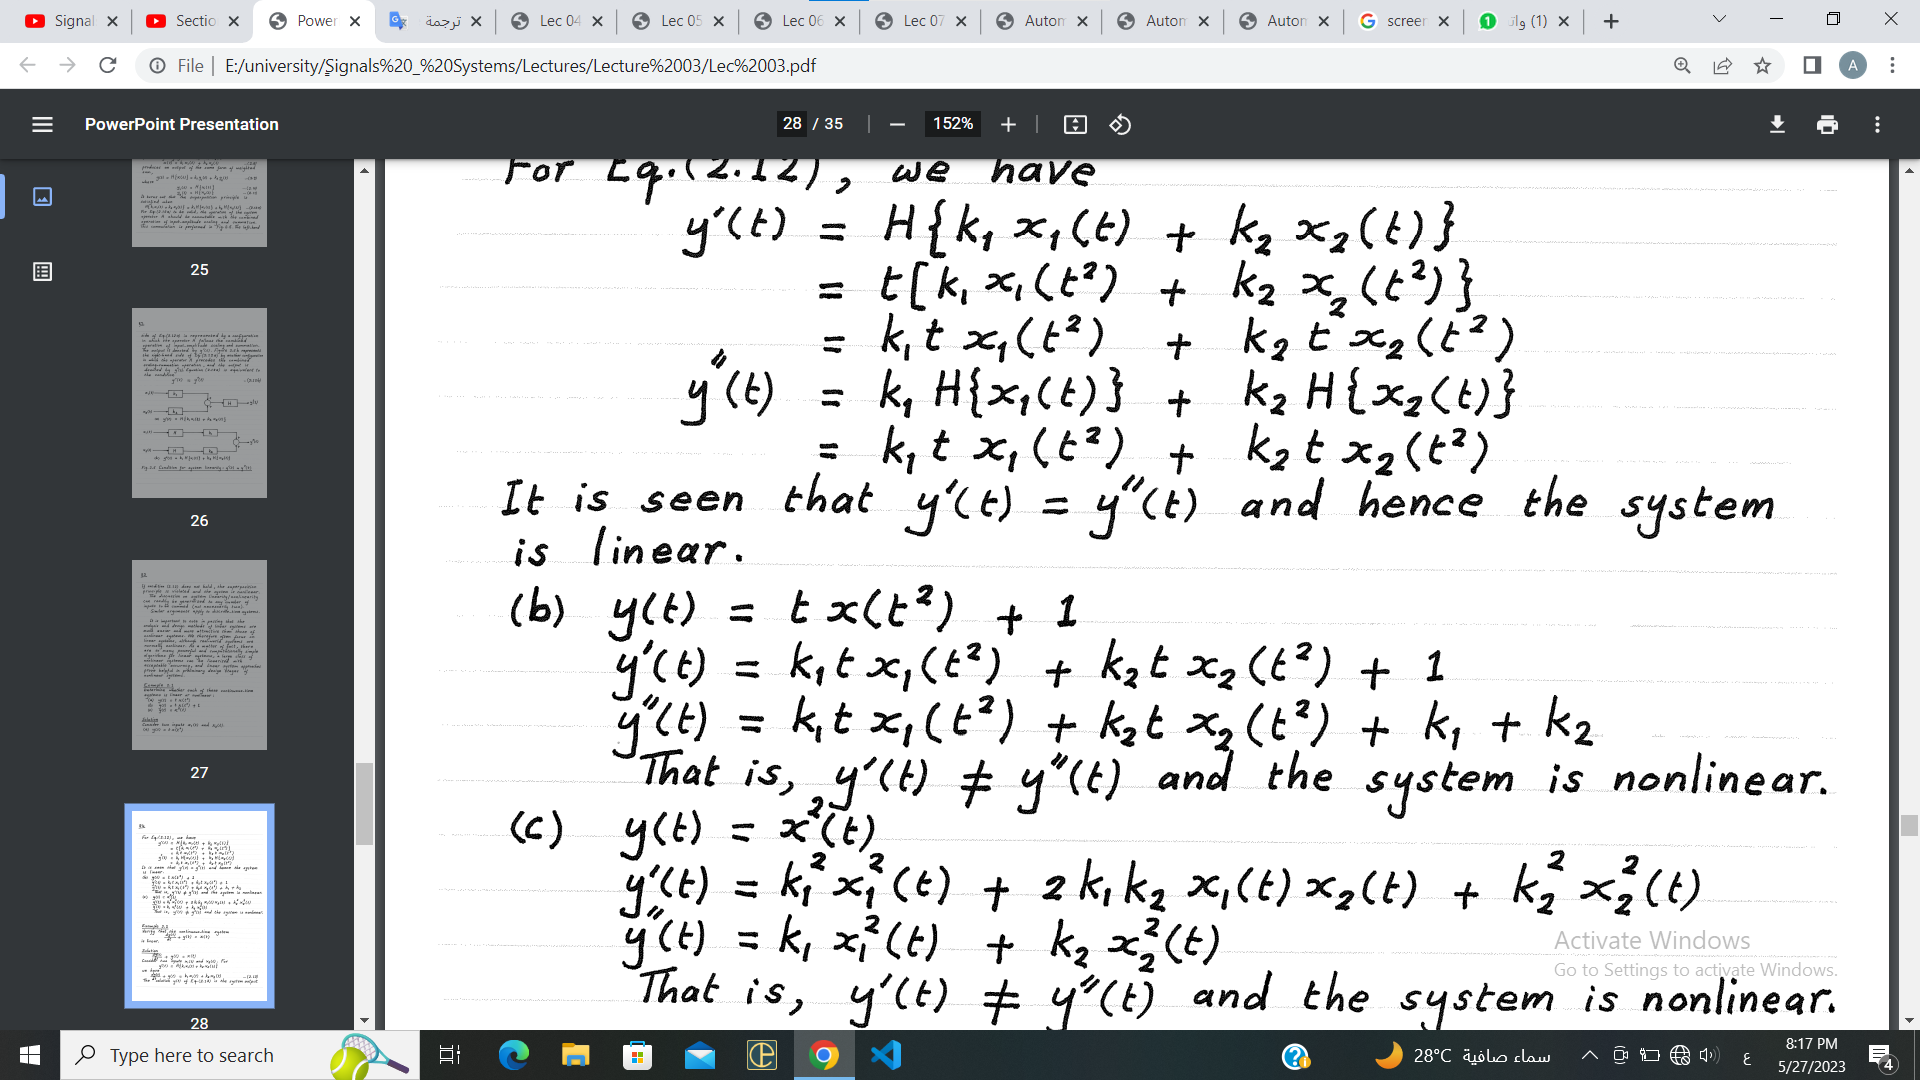 Signal
Sectio
Power
ترجمة
Lec 04
Lec 05
Lec 06
Lec 07
Autom
Autom
Autom
screen
(1) وات
File | E:/university/Signals%20_%20Systems/Lectures/Lecture%2003/Lec%2003.pdf
A
PowerPoint Presentation
28 / 35
152%
25
26
27
28
For Eq.(2.12), we have
y'(t) = H{k₁ x₁(t) + k₂ x₂(t)}
= t[k₁ x₁(t²) + k₂ x₂(t²)}
= k₁ t x₁(t²) + k₂ t x₂(t²)
y"(t) = k₁ H{x₁(t)} + k₂ H{x₂(t)}
= k₁ t x₁(t²) + k₂ t x₂(t²)
It is seen that y'(t) = y"(t) and hence the system
is linear.
(b) y(t) = t x(t²) + 1
y'(t) = k₁ t x₁(t²) + k₂ t x₂(t²) + 1
y"(t) = k₁ t x₁(t²) + k₂ t x₂(t²) + k₁ + k₂
That is, y'(t) ≠ y"(t) and the system is nonlinear.
(c) y(t) = x²(t)
y'(t) = k₁² x₁²(t) + 2 k₁ k₂ x₁(t) x₂(t) + k₂² x₂²(t)
y"(t) = k₁ x₁²(t) + k₂ x₂²(t)
That is, y'(t) ≠ y"(t) and the system is nonlinear.
Activate Windows
Go to Settings to activate Windows.
Type here to search
28°C سماء صافية
ع
8:17 PM
5/27/2023
4